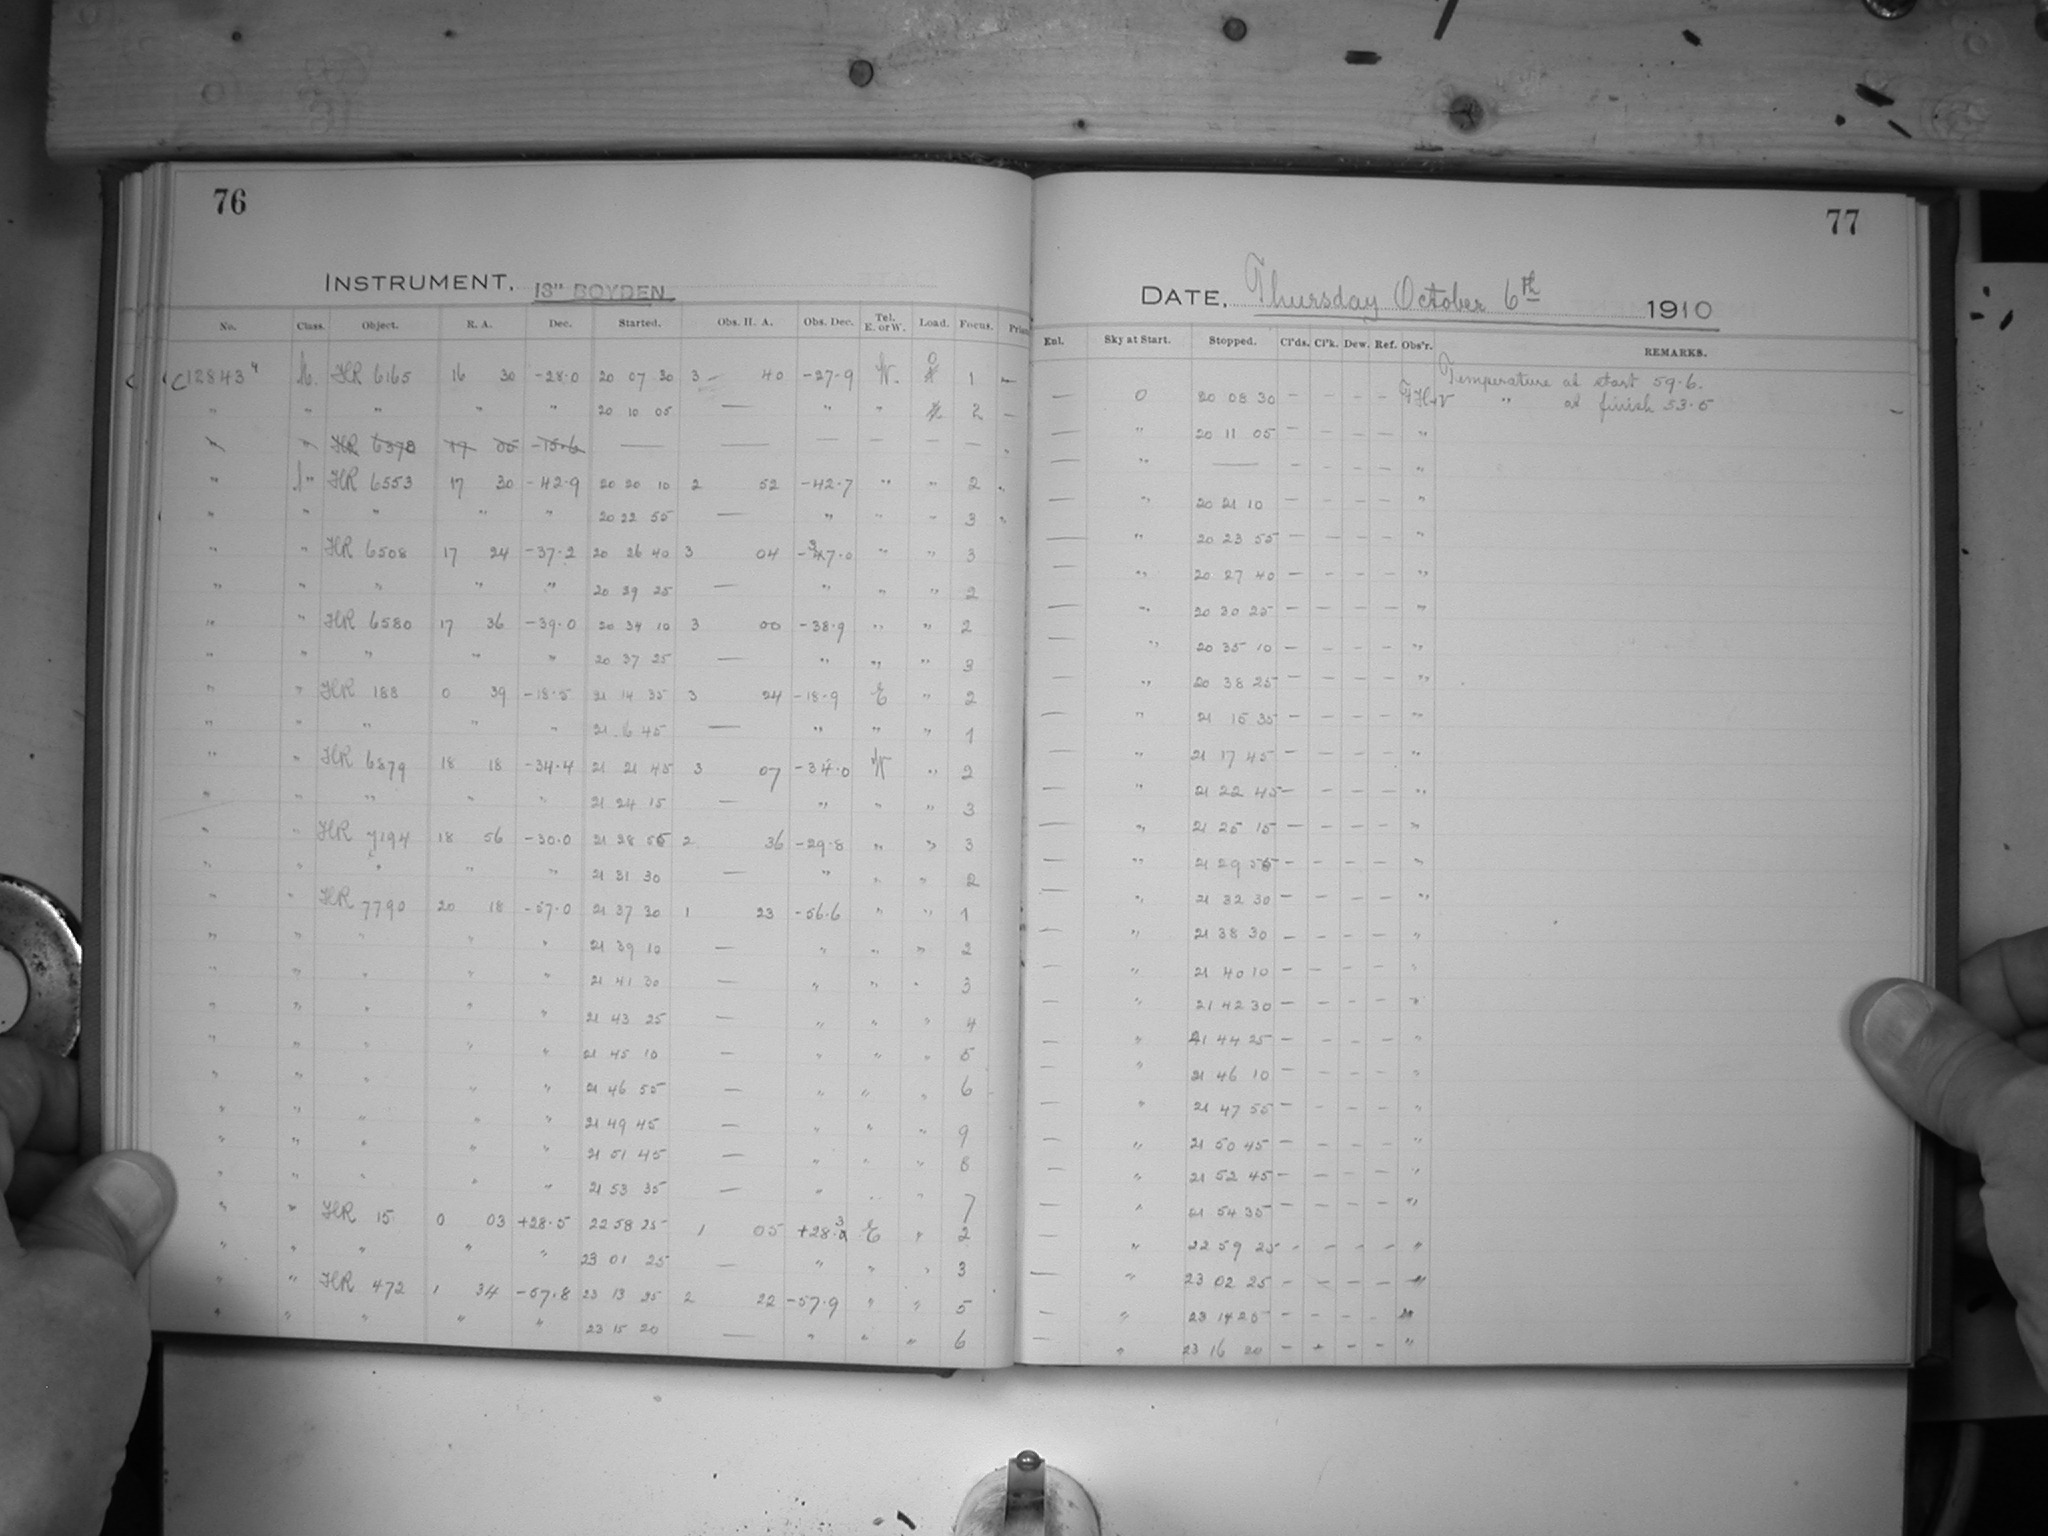 76
INSTRUMENT. 13" BOYDEN
No. Class. Object. R. A. Dec. Started. Obs. H. A. Obs. Dec. Tel. E. or W. Load. Focus.
C12843 HR 6165 16 30 -28.0 20 07 30 3 40 -27.9 W. 0 1 —
" " " " " 20 10 05 — " " 2 —
" " HR 6378 17 05 -15.6 — — — — — —
" " HR 6553 17 30 -42.9 20 20 10 2 52 -42.7 " " 2 "
" " " " " 20 22 55 — " " " 3 "
" " HR 6508 17 24 -37.2 20 26 40 3 04 -37.0 " " 3
" " " " " 20 29 25 — " " " 2
" " HR 6580 17 36 -39.0 20 34 10 3 00 -38.9 " " 2
" " " " " 20 37 25 — " " " 3
" " HR 188 0 39 -18.5 21 14 35 3 24 -18.9 E " 2
" " " " " 21 16 45 — " " " 1
" " HR 6879 18 18 -34.4 21 21 45 3 07 -34.0 W " 2
" " " " " 21 24 15 — " " " 3
" " HR 7194 18 56 -30.0 21 28 55 2 36 -29.8 " " 3
" " " " " 21 31 30 — " " " 2
" " HR 7790 20 18 -57.0 21 37 30 1 23 -56.6 " " 1
" " " " " 21 39 10 — " " " 2
" " " " " 21 41 30 — " " " 3
" " " " " 21 43 25 — " " " 4
" " " " " 21 45 10 — " " " 5
" " " " " 21 46 55 — " " " 6
" " " " " 21 49 45 — " " " 9
" " " " " 21 51 45 — " " " 8
" " " " " 21 53 35 — " " " 7
" " HR 15 0 03 +28.5 22 58 25 1 05 +28.3 E " 2
" " " " " 23 01 25 — " " " 3
" " HR 472 1 34 -57.8 23 13 25 2 22 -57.9 " " 5
" " " " " 23 15 20 — " " " 6
77
DATE. Thursday October 6th 1910
Enl. Sky at Start. Stopped. Cl'ds. Cl'k. Dew. Ref. Obs'r. REMARKS.
Temperature at start 59.6.
— 0 20 08 30 — — — — " at finish 53.5
— " 20 11 05 — — — — "
— " — — — — — "
— " 20 21 10 — — — — "
— " 20 23 55 — — — — "
— " 20 27 40 — — — — "
— " 20 30 25 — — — — "
— " 20 35 10 — — — — "
— " 20 38 25 — — — — "
— " 21 15 35 — — — — "
— " 21 17 45 — — — — "
— " 21 22 45 — — — — "
— " 21 25 15 — — — — "
— " 21 29 55 — — — — "
— " 21 32 30 — — — — "
— " 21 38 30 — — — — "
— " 21 40 10 — — — — "
— " 21 42 30 — — — — "
— " 21 44 25 — — — — "
— " 21 46 10 — — — — "
— " 21 47 55 — — — — "
— " 21 50 45 — — — — "
— " 21 52 45 — — — — "
— " 21 54 35 — — — — "
— " 22 59 25 — — — — "
— " 23 02 25 — — — — "
— " 23 14 25 — — — — "
— " 23 16 20 — — — — "